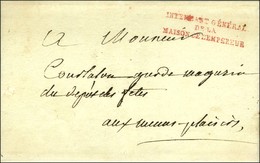 INTENDANT GÉNÉRAL
DE LA
MAISON DE L'EMPEREUR
A Monsieur
garde magasin
du dépôt des fêtes
aux menus plaisirs